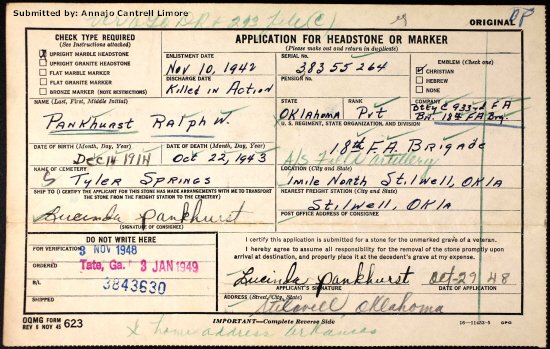 Submitted by: Annajo Cantrell Limore
ORIGINAL
CHECK TYPE REQUIRED
(See Instructions attached)
UPRIGHT MARBLE HEADSTONE
UPRIGHT GRANITE HEADSTONE
FLAT MARBLE MARKER
FLAT GRANITE MARKER
BRONZE MARKER (NOTE RESTRICTIONS)
APPLICATION FOR HEADSTONE OR MARKER
(Please make out and return in duplicate)
ENLISTMENT DATE
Nov 10, 1942
SERIAL NO.
38355264
EMBLEM (Check one)
CHRISTIAN
HEBREW
NONE
DISCHARGE DATE
Killed in Action
PENSION NO.
NAME (Last, First, Middle Initial)
Pankhurst Ralph W.
STATE
Oklahoma
RANK
Pvt
COMPANY
Btry C 933rd F A
Bn. 18th F.A. Brig.
U. S. REGIMENT, STATE ORGANIZATION, AND DIVISION
18th F.A. Brigade
DATE OF BIRTH (Month, Day, Year)
Dec 14 1914
DATE OF DEATH (Month, Day, Year)
Oct 22, 1943
A/S Field Artillery
NAME OF CEMETERY
Tyler Springs
LOCATION (City and State)
1 mile North Stilwell, Okla
SHIP TO (I CERTIFY THE APPLICANT FOR THIS STONE HAS MADE ARRANGEMENTS WITH ME TO TRANSPORT THE STONE FROM THE FREIGHT STATION TO THE CEMETERY)
Lucinda Pankhurst
(SIGNATURE OF CONSIGNEE)
NEAREST FREIGHT STATION (City and State)
Stilwell, Okla
POST OFFICE ADDRESS OF CONSIGNEE
DO NOT WRITE HERE
FOR VERIFICATION
3 NOV 1948
ORDERED
Tate, Ga. 3 JAN 1949
B/L
3843630
I certify this application is submitted for a stone for the unmarked grave of a veteran.
I hereby agree to assume all responsibility for the removal of the stone promptly
upon arrival at destination, and properly place it at the decedent's grave at my expense.
Lucinda Pankhurst Oct-29 48
APPLICANT'S SIGNATURE DATE OF APPLICATION
ADDRESS (Street, City, State)
Stilwell Oklahoma
OQMG FORM
REV 6 NOV 45 623
IMPORTANT—Complete Reverse Side
GPO
X home address Arkansas